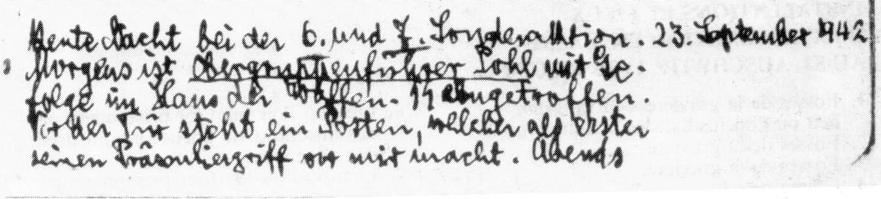 Heute Nacht bei der 6. und 7. Sonderaktion. 23. September 1942
Morgens ist Obergruppenführer Pohl mit Ge-
folge im Haus der Waffen-SS eingetroffen.
Vor der Tür steht ein Posten, welcher als erster
seinen Präsentiergriff vor mir macht. Abends